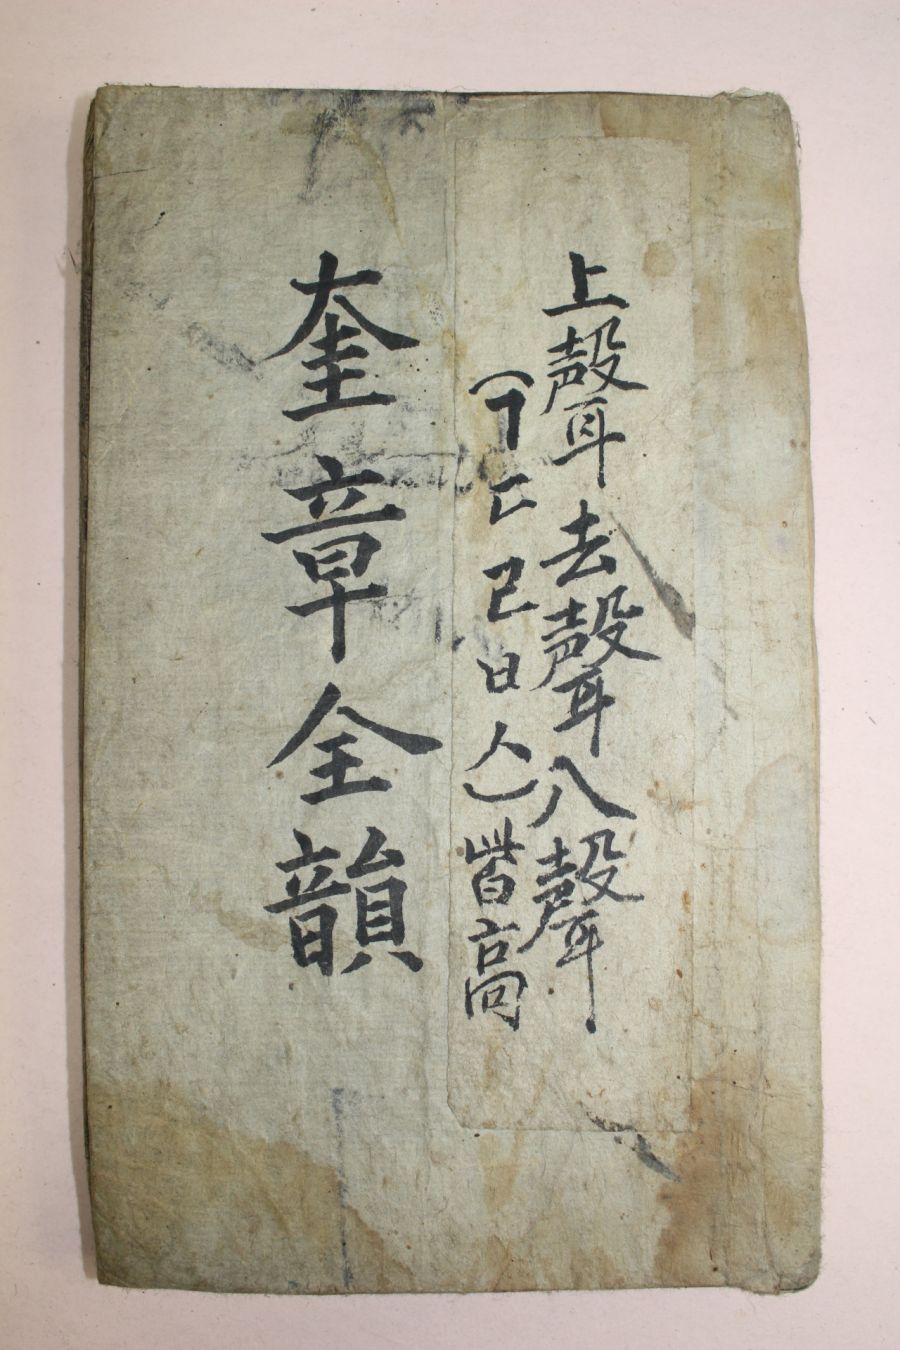 上聲去聲入聲
(ㄱㄷㄹㅂㅅ)皆高
奎章全韻